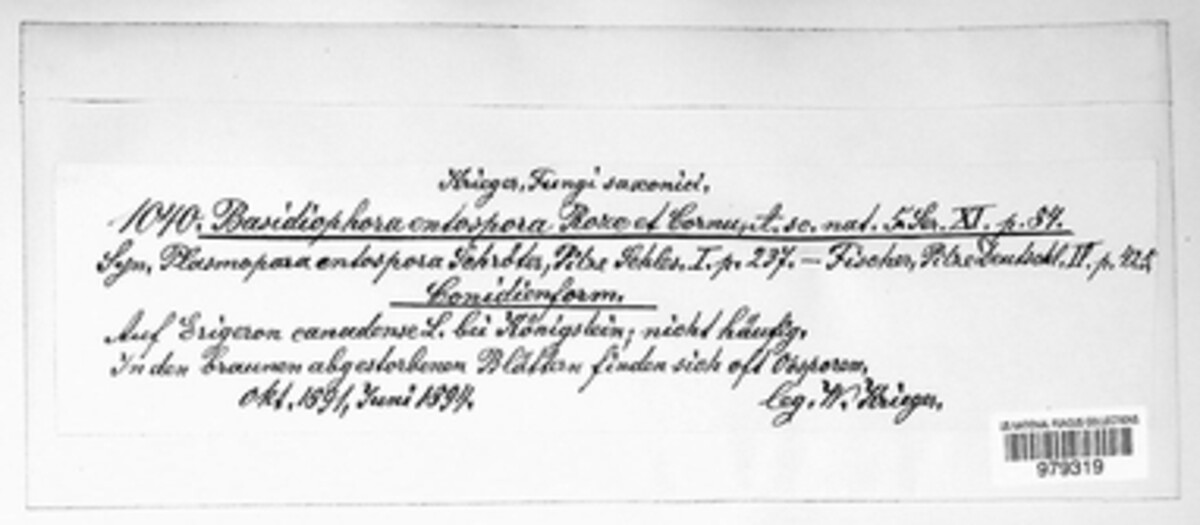 Krieger, Fungi saxonici.
1040. Basidiophora entospora Roze et Cornu, A. sc. nat. 5. Ser. XI. p. 84.
Syn. Plasmopara entospora Schröter, Pilze Schles. I. p. 237. — Fischer, Pilze Deutschl. IV. p.
Conidienform.
Auf Erigeron canadense L. bei Königstein; nicht häufig.
In den braunen abgestorbenen Blättern finden sich oft Oosporen.
Okt. 1891, Juni 1894. leg. W. Krieger.
US NATIONAL FUNGUS COLLECTIONS
979319